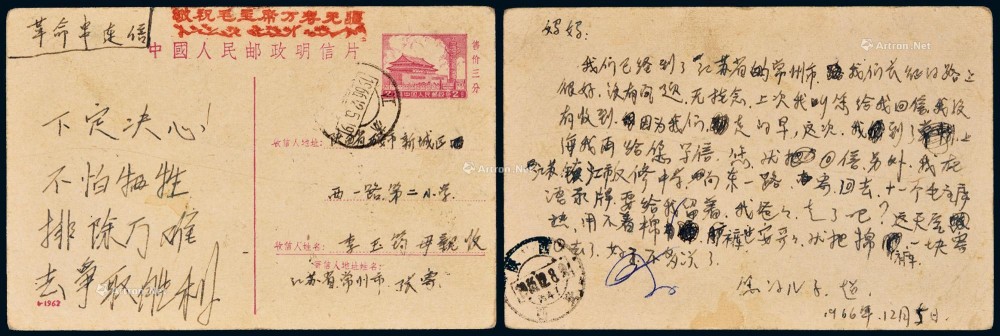 革命串连信
敬祝毛主席万寿无疆
中國人民邮政明信片
售价三分
中国人民邮政
2分
下定决心!
不怕牺牲
排除万难
去争取胜利
4-1963
收信人地址:
市新城区
西一路第二小学
收信人姓名:
李玉筠 母亲收
寄信人地址姓名:
江苏省常州市 张寄
1966.12.5
妈妈:
我们已经到了江苏省的常州市 我们长征的路上
很好,没有问题,无挂念,上次我叫您给我回信,我没
有收到,因为我们走的早,这次,我到了
海我再给您写信。您就把回信另外,我在
江苏镇江市 修中学 向东一路 寄回去,十一个毛主席
语录牌要给我留着,我爸爸走了吧?这天气
快,用不着棉裤 就把棉裤一块寄
去了,好 不多说了
您的儿子
1966年.12月5日.
Artron.Net
Artron.Net